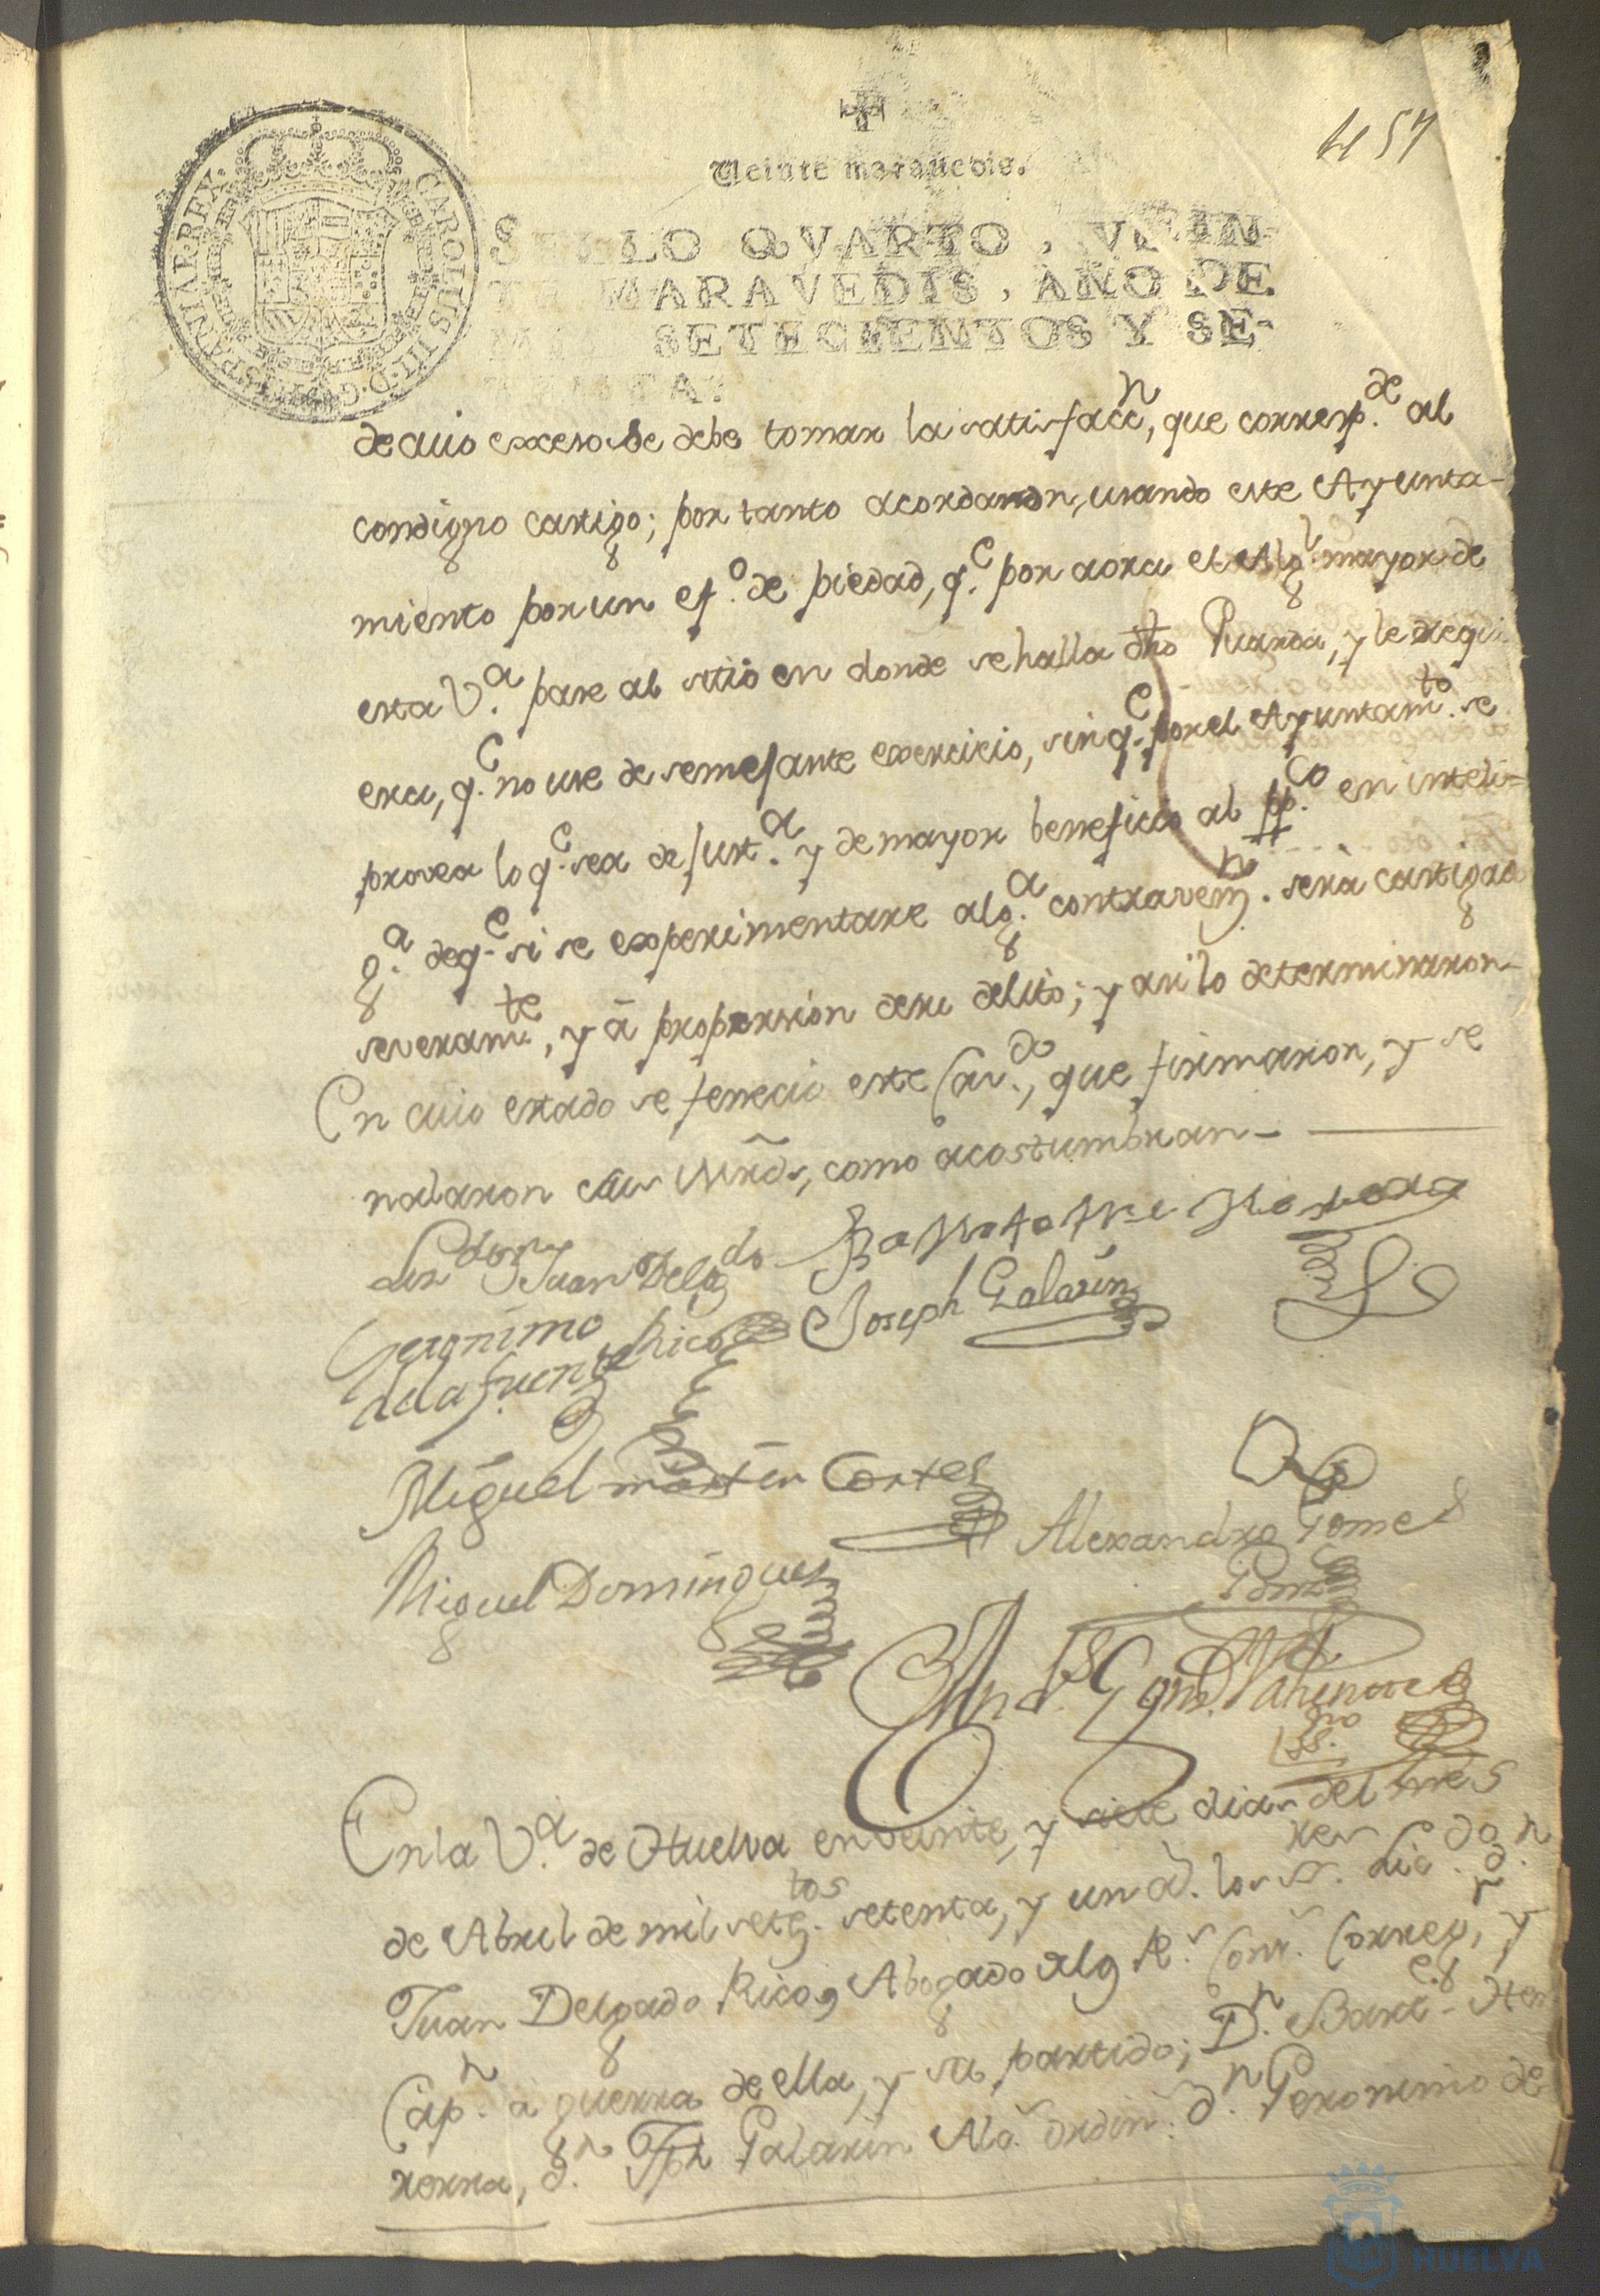 457
Veinte marauedis.
SELLO QVARTO, VEIN-
TE MARAVEDIS, AÑO DE
MIL SETECIENTOS Y SE-
TENTA.
CAROLUS III D G HISPANIAR REX
de cuio exceso se debe tomar la satisfacc.n, que corresp.de al
condigno castigo; por tanto acordaron, usando este Ayunta-
miento por un ef.o de piedad, q.e por aora el Alg.l mayor de
esta V.a pase al sitio en donde se halla dho Guarda, y le
era, q.e no use de semejante exercicio, sin q.e por el Ayuntam.to se
provea lo q.e sea de just.a y de mayor beneficio al pp.co en inteli-
g.a de q.e si se experimentare alg.a contravenn. serà castigado
severam.te, y à proporsion de su delito; y asi lo determinaron-
En cuio estado se fenecio este Cav.do, que firmaron, y se
nalaron sus Mrds, como acostumbran-
Juan Delg.do
Rico
Joseph Galarin
Geronimo
de la fuente
Miguel martin Cortes
Alexandro Gomes
Miguel Domingues
En la V.a de Huelva en veinte, y siete dias del mes
de Abril de mil seteg.tos setenta, y un a. los ss.res Lic.do D.n
Juan Delgado Rico, Abogado de los R.s Cons.s Correg.r, y
Cap.n à guerra de ella, y su partido; D.n Bart.e Her
rera, d.n Jph Galarin Alc.s ordin.s d.n Geronimo de
Ayuntamiento
HUELVA